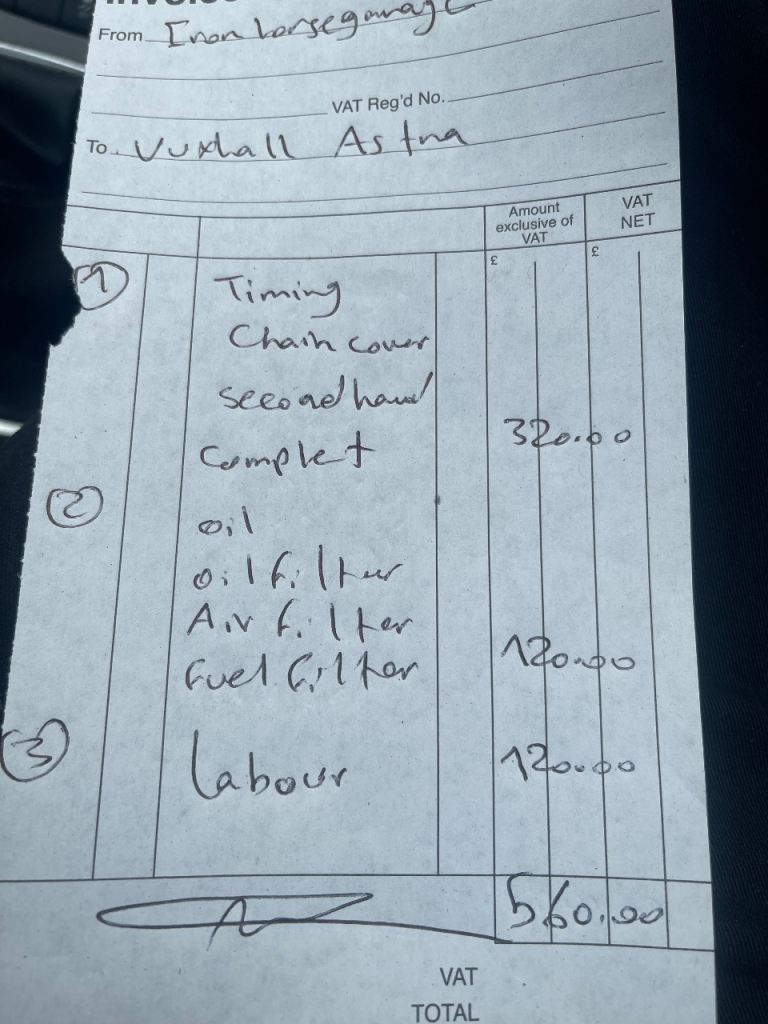 From Iron horse garage
VAT Reg'd No.
To Vuxhall Astra
Amount exclusive of VAT
VAT NET
£ £
1 Timing
Chain cover
second hand
Complet 320.00
2 oil
oil filter
Air filter
Fuel filter 120.00
3 Labour 120.00
560.00
VAT
TOTAL